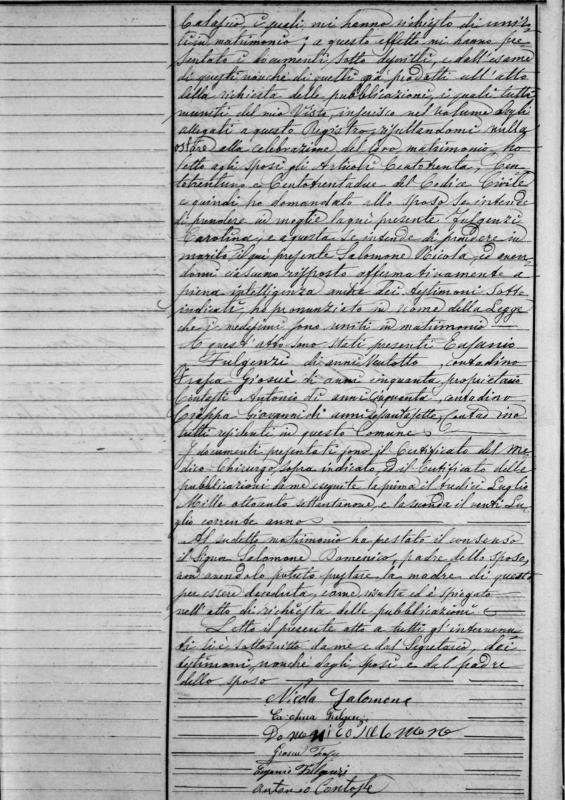 Calascio, i quali mi hanno richiesto di unir-
li in matrimonio; a questo effetto mi hanno pre-
sentato i documenti sotto descritti, e dall'esame
di questi nonché di quelli già prodotti all'atto
della richiesta delle pubblicazioni, i quali tutti
muniti del mio Visto, inserisco nel volume degli
allegati a questo Registro, risultandomi nulla
ostare alla celebrazione del loro matrimonio, ho
letto agli sposi gli Articoli Centotrenta, Cen-
totrentuno e Centotrentadue del Codice Civile
e quindi ho domandato allo sposo se intende
di prendere in moglie la qui presente Fulgenzi
Carolina, e a questa se intende di prendere in
marito il qui presente Salomone Nicola, ed aven-
domi ciascuno risposto affermativamente a
piena intelligenza anche dei testimoni sotto
indicati, ho pronunziato in nome della Legge
che i medesimi sono uniti in matrimonio
A quest'atto sono stati presenti Eusanio
Fulgenzi di anni ventotto, contadino
Frasca Giosuè di anni cinquanta proprietario
Antonio di anni cinquanta, contadino
Giovanni di anni sessantasette, contadino
tutti residenti in questo Comune
I documenti presentati sono, il Certificato del Me-
dico Chirurgo, sopra indicato, ed il Certificato delle
pubblicazioni come eseguite la prima il tredici Luglio
Mille ottocento settantanove, e la seconda il venti Lu-
glio corrente anno
Al sudetto matrimonio ha prestato il consenso
il Signor Salomone Domenico, padre dello sposo,
non avendolo potuto prestare, la madre di questo
per essere deceduta, come risulta ed è spiegato
nell'atto di richiesta delle pubblicazioni
Letto il presente atto a tutti gl'intervenu-
ti si è sottoscritto da me e dal Segretario, dei
testimoni, nonché dagli sposi e dal padre
dello sposo
Nicola Salomone
Carolina Fulgenzi
Domenico Salomone
Giosuè
Eusanio Fulgenzi
Antonio